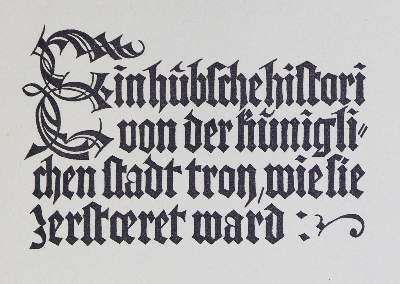 Ein hübsche histori
von der künigli⸗
chen stadt troy, wie sie
zerstœret ward :~